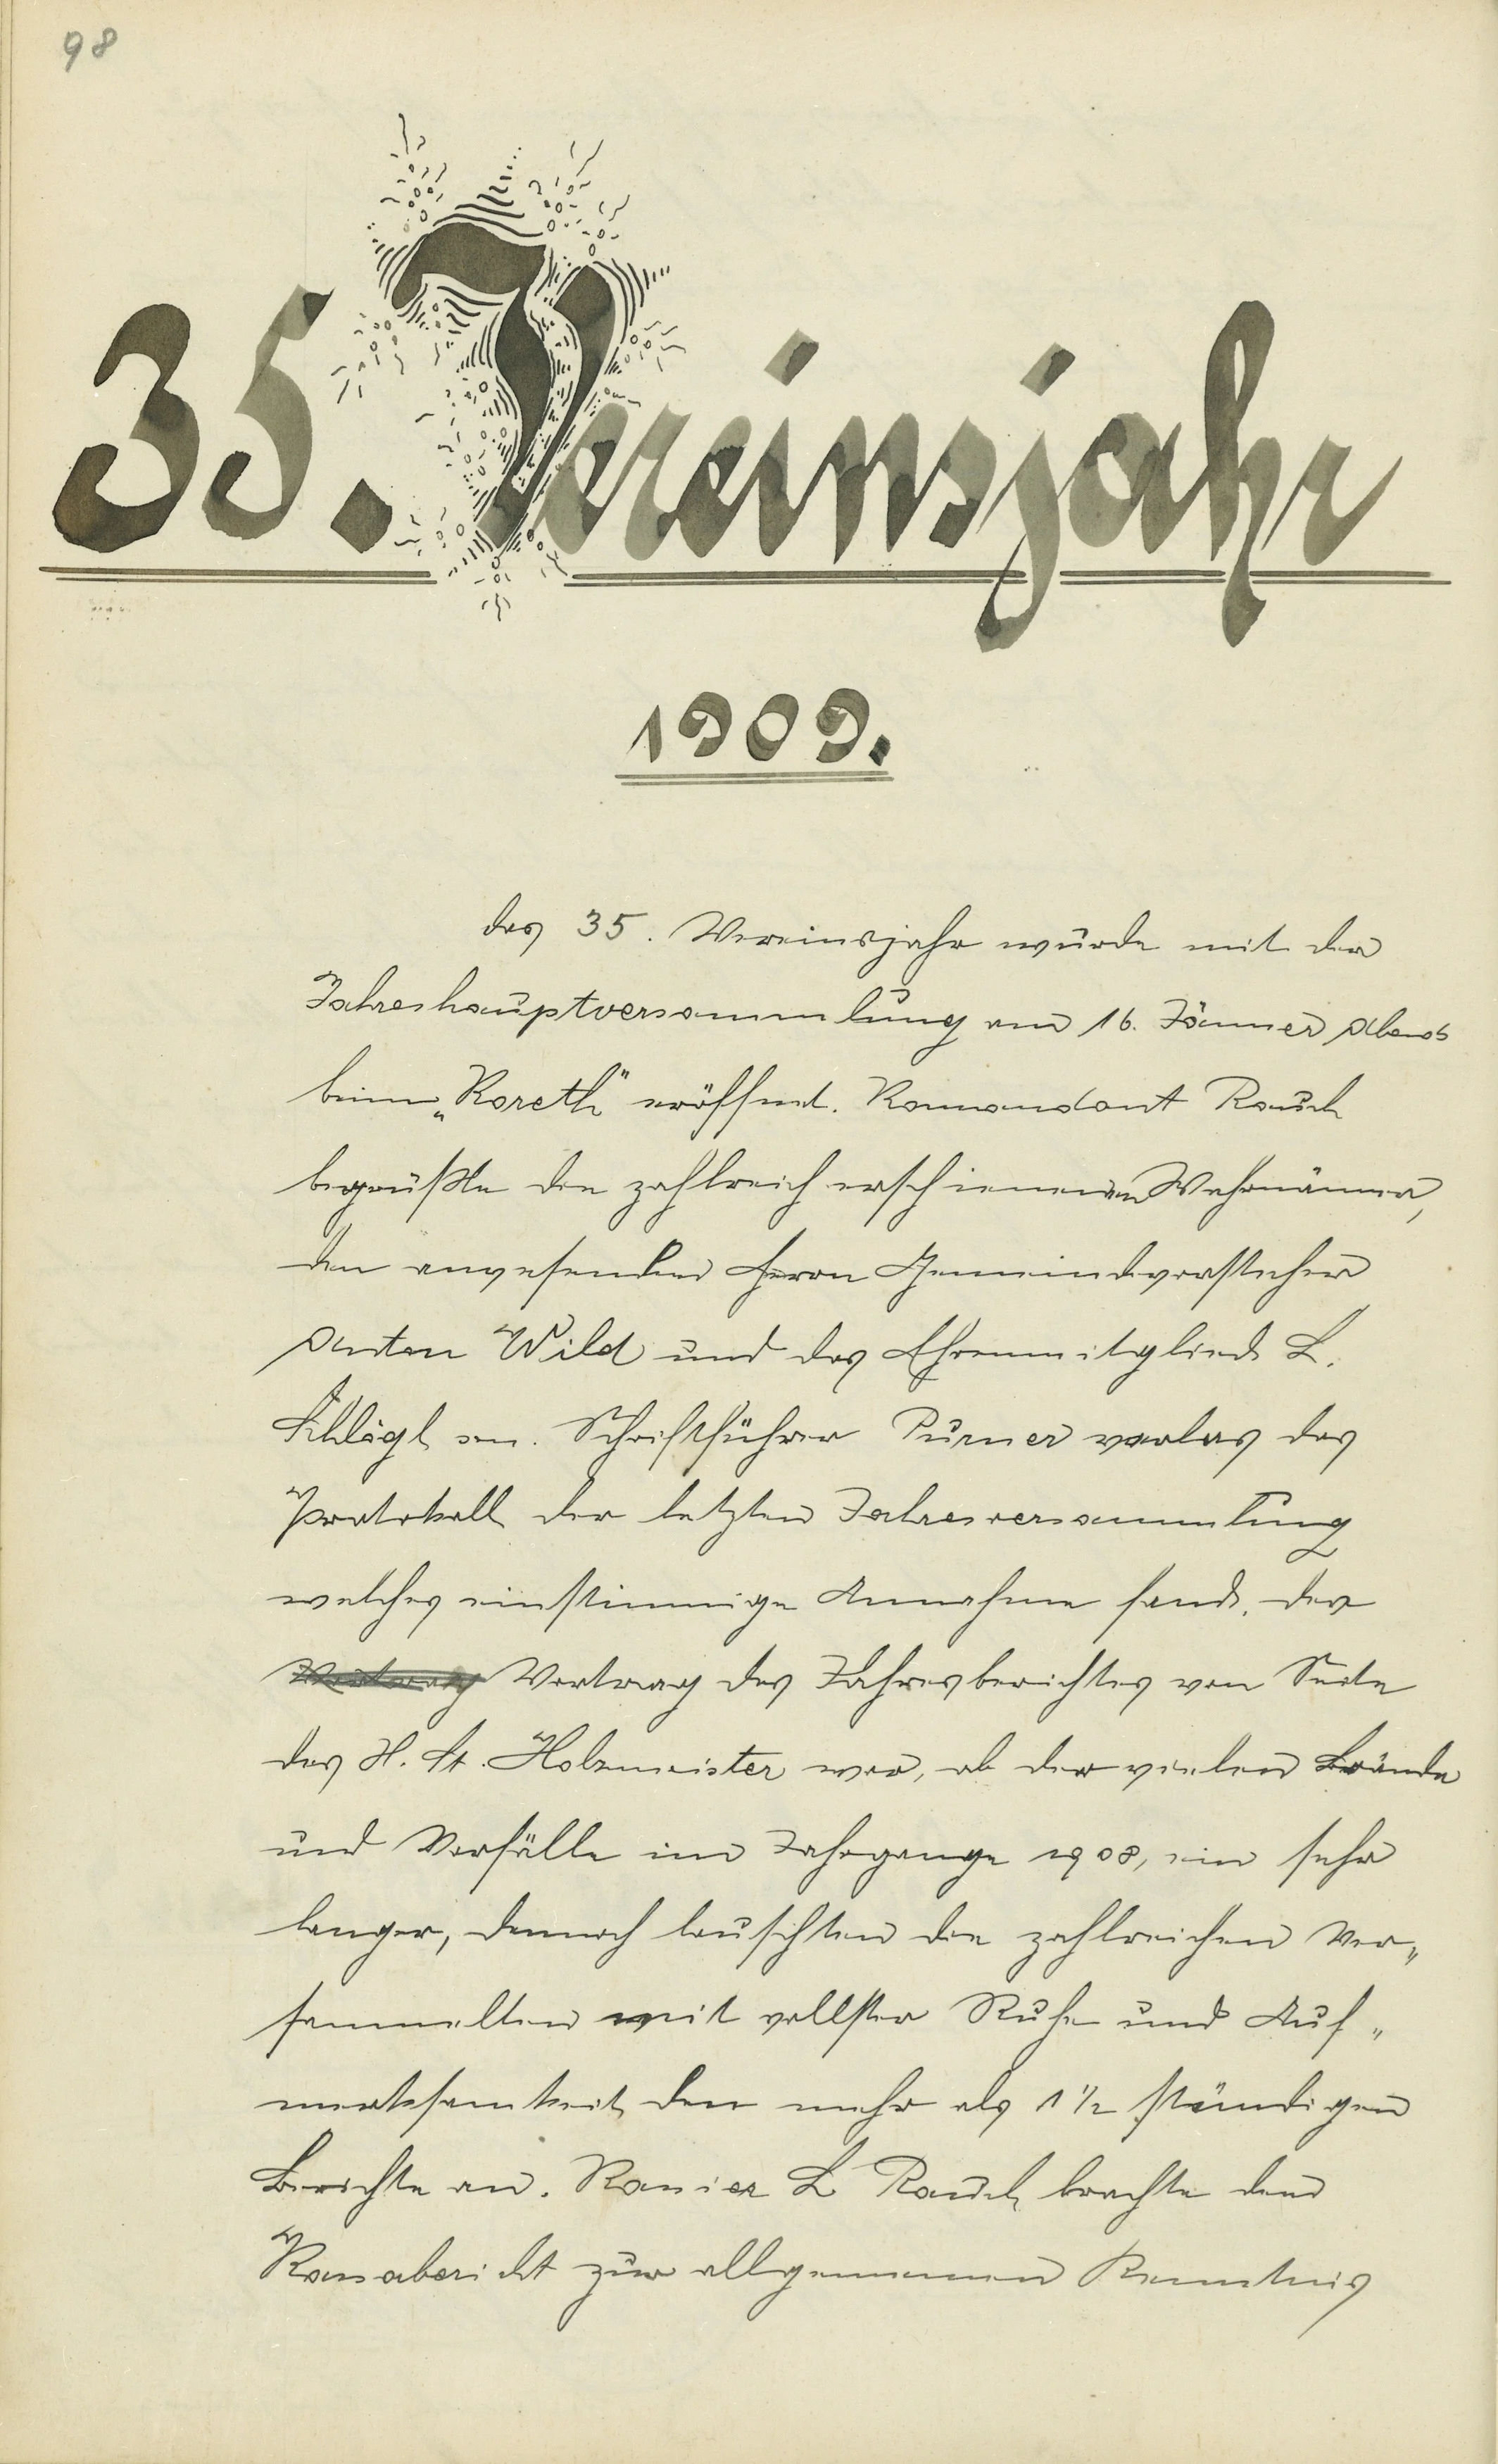 98
35. Vereinsjahr
1909.
das 35. Vereinsjahr wurde mit der
Jahreshauptversammlung am 16. Jänner Abends
beim „Koreth" eröffnet. Kommandant Rauch
begrüßte die zahlreich erschienenen Wehrmänner,
den anwesenden Herrn Gemeindevorsteher
Anton Wild und das Ehrenmitglied L.
Schlögl sen. Schriftführer Purner verlas das
Protokoll der letzten Jahresversammlung
welches einstimmige Annahme fand. Der
Vortrag Vortrag des Jahresberichtes von Seite
des H. St. Holzmeister war, ob der vielen Brände
und Vorfälle im Jahrgange 1908, ein sehr
langer, dennoch lauschten die zahlreichen Ver„
sammelten mit vollster Ruhe und Auf„
merksamkeit den mehr als 1 ½ stündigen
Berichte an. Kassier L Rauch brachte den
Kassabericht zur allgemeinen Kenntnis